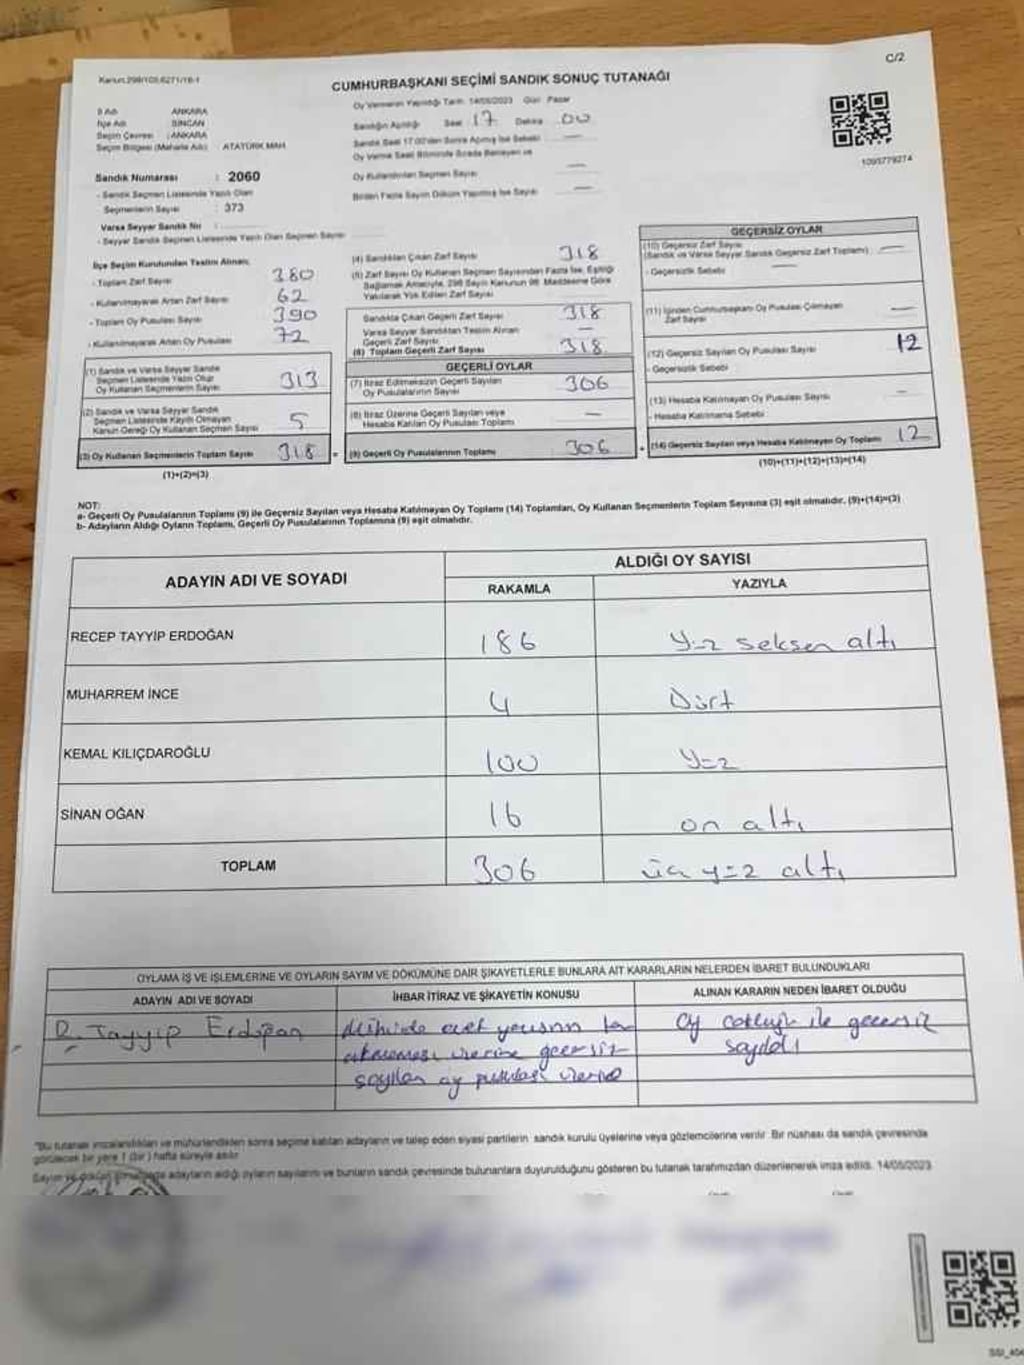 Kanun:298/105,6271/16-1
C/2
CUMHURBAŞKANI SEÇİMİ SANDIK SONUÇ TUTANAĞI
Oy Vermenin Yapıldığı Tarih: 14/05/2023 Gün: Pazar
İl Adı ANKARA
İlçe Adı SİNCAN
Seçim Çevresi : ANKARA
Seçim Bölgesi (Mahalle Adı) ATATÜRK MAH
Sandığın Açıldığı Saat 17 Dakika 00
Sandık Saat 17:00'den Sonra Açılmış İse Sebebi —
Oy Verme Saati Bitiminde Sırada Bekleyen ve
Oy Kullandırılan Seçmen Sayısı —
Birden Fazla Sayım Döküm Yapılmış İse Sayısı —
1095779274
Sandık Numarası : 2060
- Sandık Seçmen Listesinde Yazılı Olan
Seçmenlerin Sayısı : 373
Varsa Seyyar Sandık No :
- Seyyar Sandık Seçmen Listesinde Yazılı Olan Seçmen Sayısı:
İlçe Seçim Kurulundan Teslim Alınan;
- Toplam Zarf Sayısı 380
- Kullanılmayarak Artan Zarf Sayısı 62
- Toplam Oy Pusulası Sayısı 390
- Kullanılmayarak Artan Oy Pusulası 72
(1) Sandık ve Varsa Seyyar Sandık
Seçmen Listesinde Yazılı Olup
Oy Kullanan Seçmenlerin Sayısı 313
(2) Sandık ve Varsa Seyyar Sandık
Seçmen Listesinde Kayıtlı Olmayan
Kanun Gereği Oy Kullanan Seçmen Sayısı 5
(3) Oy Kullanan Seçmenlerin Toplam Sayısı 318
(1)+(2)=(3)
(4) Sandıktan Çıkan Zarf Sayısı 318
(5) Zarf Sayısı Oy Kullanan Seçmen Sayısından Fazla İse, Eşitliği
Sağlamak Amacıyla, 298 Sayılı Kanunun 98. Maddesine Göre
Yakılarak Yok Edilen Zarf Sayısı
Sandıkta Çıkan Geçerli Zarf Sayısı 318
Varsa Seyyar Sandıktan Teslim Alınan
Geçerli Zarf Sayısı —
(6) Toplam Geçerli Zarf Sayısı 318
GEÇERLİ OYLAR
(7) İtiraz Edilmeksizin Geçerli Sayılan
Oy Pusulalarının Sayısı 306
(8) İtiraz Üzerine Geçerli Sayılan veya
Hesaba Katılan Oy Pusulası Toplamı —
(9) Geçerli Oy Pusulalarının Toplamı 306
GEÇERSİZ OYLAR
(10) Geçersiz Zarf Sayısı
(Sandık ve Varsa Seyyar Sandık Geçersiz Zarf Toplamı) —
- Geçersizlik Sebebi —
(11) İçinden Cumhurbaşkanı Oy Pusulası Çıkmayan
Zarf Sayısı —
(12) Geçersiz Sayılan Oy Pusulası Sayısı 12
- Geçersizlik Sebebi
(13) Hesaba Katılmayan Oy Pusulası Sayısı —
- Hesaba Katılmama Sebebi
(14) Geçersiz Sayılan veya Hesaba Katılmayan Oy Toplamı 12
(10)+(11)+(12)+(13)=(14)
NOT:
a- Geçerli Oy Pusulalarının Toplamı (9) ile Geçersiz Sayılan veya Hesaba Katılmayan Oy Toplamı (14) Toplamları, Oy Kullanan Seçmenlerin Toplam Sayısına (3) eşit olmalıdır. (9)+(14)=(3)
b- Adayların Aldığı Oyların Toplamı, Geçerli Oy Pusulalarının Toplamına (9) eşit olmalıdır.
ADAYIN ADI VE SOYADI
ALDIĞI OY SAYISI
RAKAMLA YAZIYLA
RECEP TAYYİP ERDOĞAN 186 yüz seksen altı
MUHARREM İNCE 4 Dört
KEMAL KILIÇDAROĞLU 100 yüz
SİNAN OĞAN 16 on altı
TOPLAM 306 üç yüz altı
OYLAMA İŞ VE İŞLEMLERİNE VE OYLARIN SAYIM VE DÖKÜMÜNE DAİR ŞİKAYETLERLE BUNLARA AİT KARARLARIN NELERDEN İBARET BULUNDUKLARI
ADAYIN ADI VE SOYADI İHBAR İTİRAZ VE ŞİKAYETİN KONUSU ALINAN KARARIN NEDEN İBARET OLDUĞU
R. Tayyip Erdoğan
evet yazısının
üzerine geçersiz
sayılan oy pusulası üzerine
oy çokluğu ile geçersiz
sayıldı
"Bu tutanak imzalandıktan ve mühürlendikten sonra seçime katılan adayların ve talep eden siyasi partilerin sandık kurulu üyelerine veya gözlemcilerine verilir. Bir nüshası da sandık çevresinde
görülecek bir yere 1 (bir) hafta süreyle asılır.
Sayım ve döküm adayların aldığı oyların sayılarını ve bunların sandık çevresinde bulunanlara duyurulduğunu gösteren bu tutanak tarafımızdan düzenlenerek imza edildi. 14/05/2023